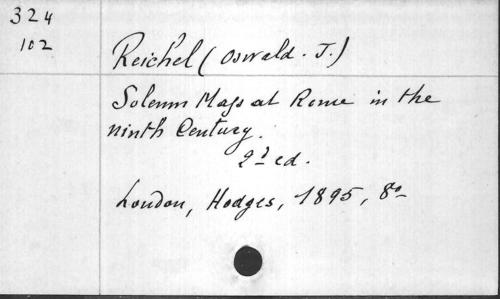 324
102
Reichel (Oswald. J.)
Solemn Mass at Rome in the
ninth Century.
2d ed.
London, Hodges, 1895, 8o